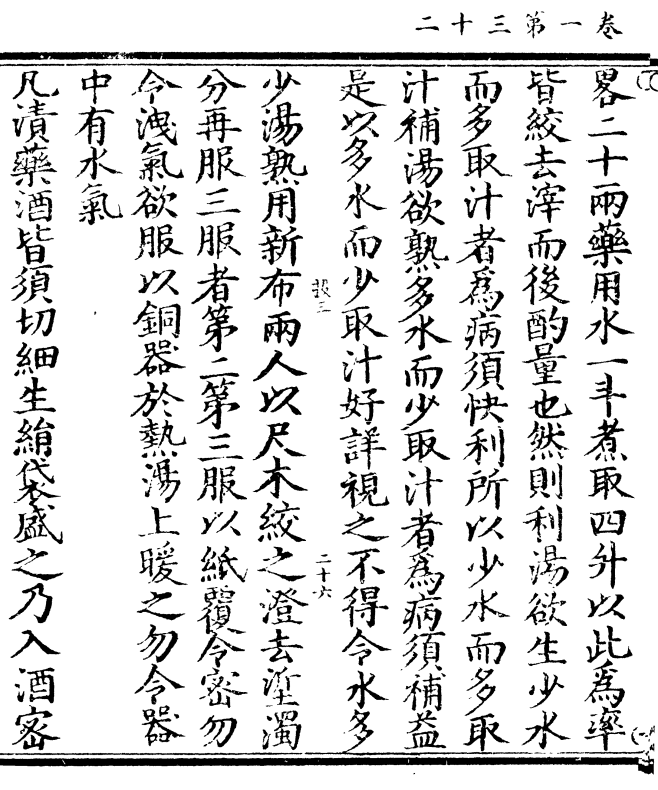 卷一第三十二
畧二十兩藥用水一斗煮取四升以此爲率
皆絞去滓而後酌量也然則利湯欲生少水
而多取汁者爲病須快利所以少水而多取
汁補湯欲熟多水而少取汁者爲病須補益
是以多水而少取汁好詳視之不得令水多
少湯熟用新布兩人以尺木絞之澄去垽濁
分再服三服者第二第三服以紙覆令密勿
令洩氣欲服以銅器於熱湯上暖之勿令器
中有水氣
凡漬藥酒皆須切細生絹袋盛之乃入酒密
報三
二十六